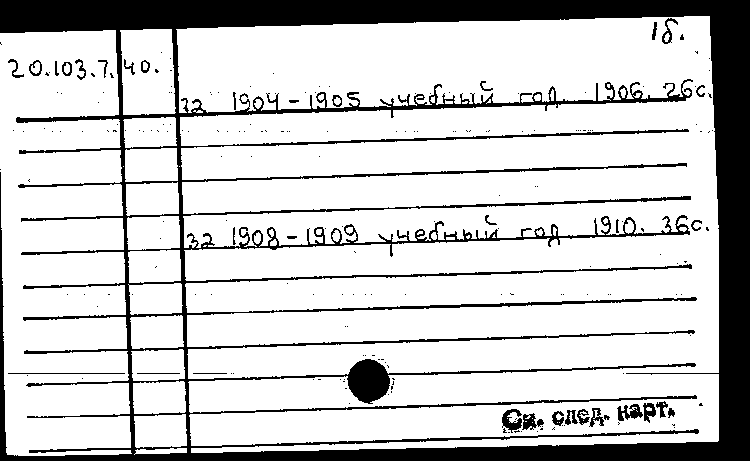 1б.
20.103.7.40.
32 1904-1905 учебный год 1906. 26с.
32 1908-1909 учебный год 1910. 36с.
См. след. карт.